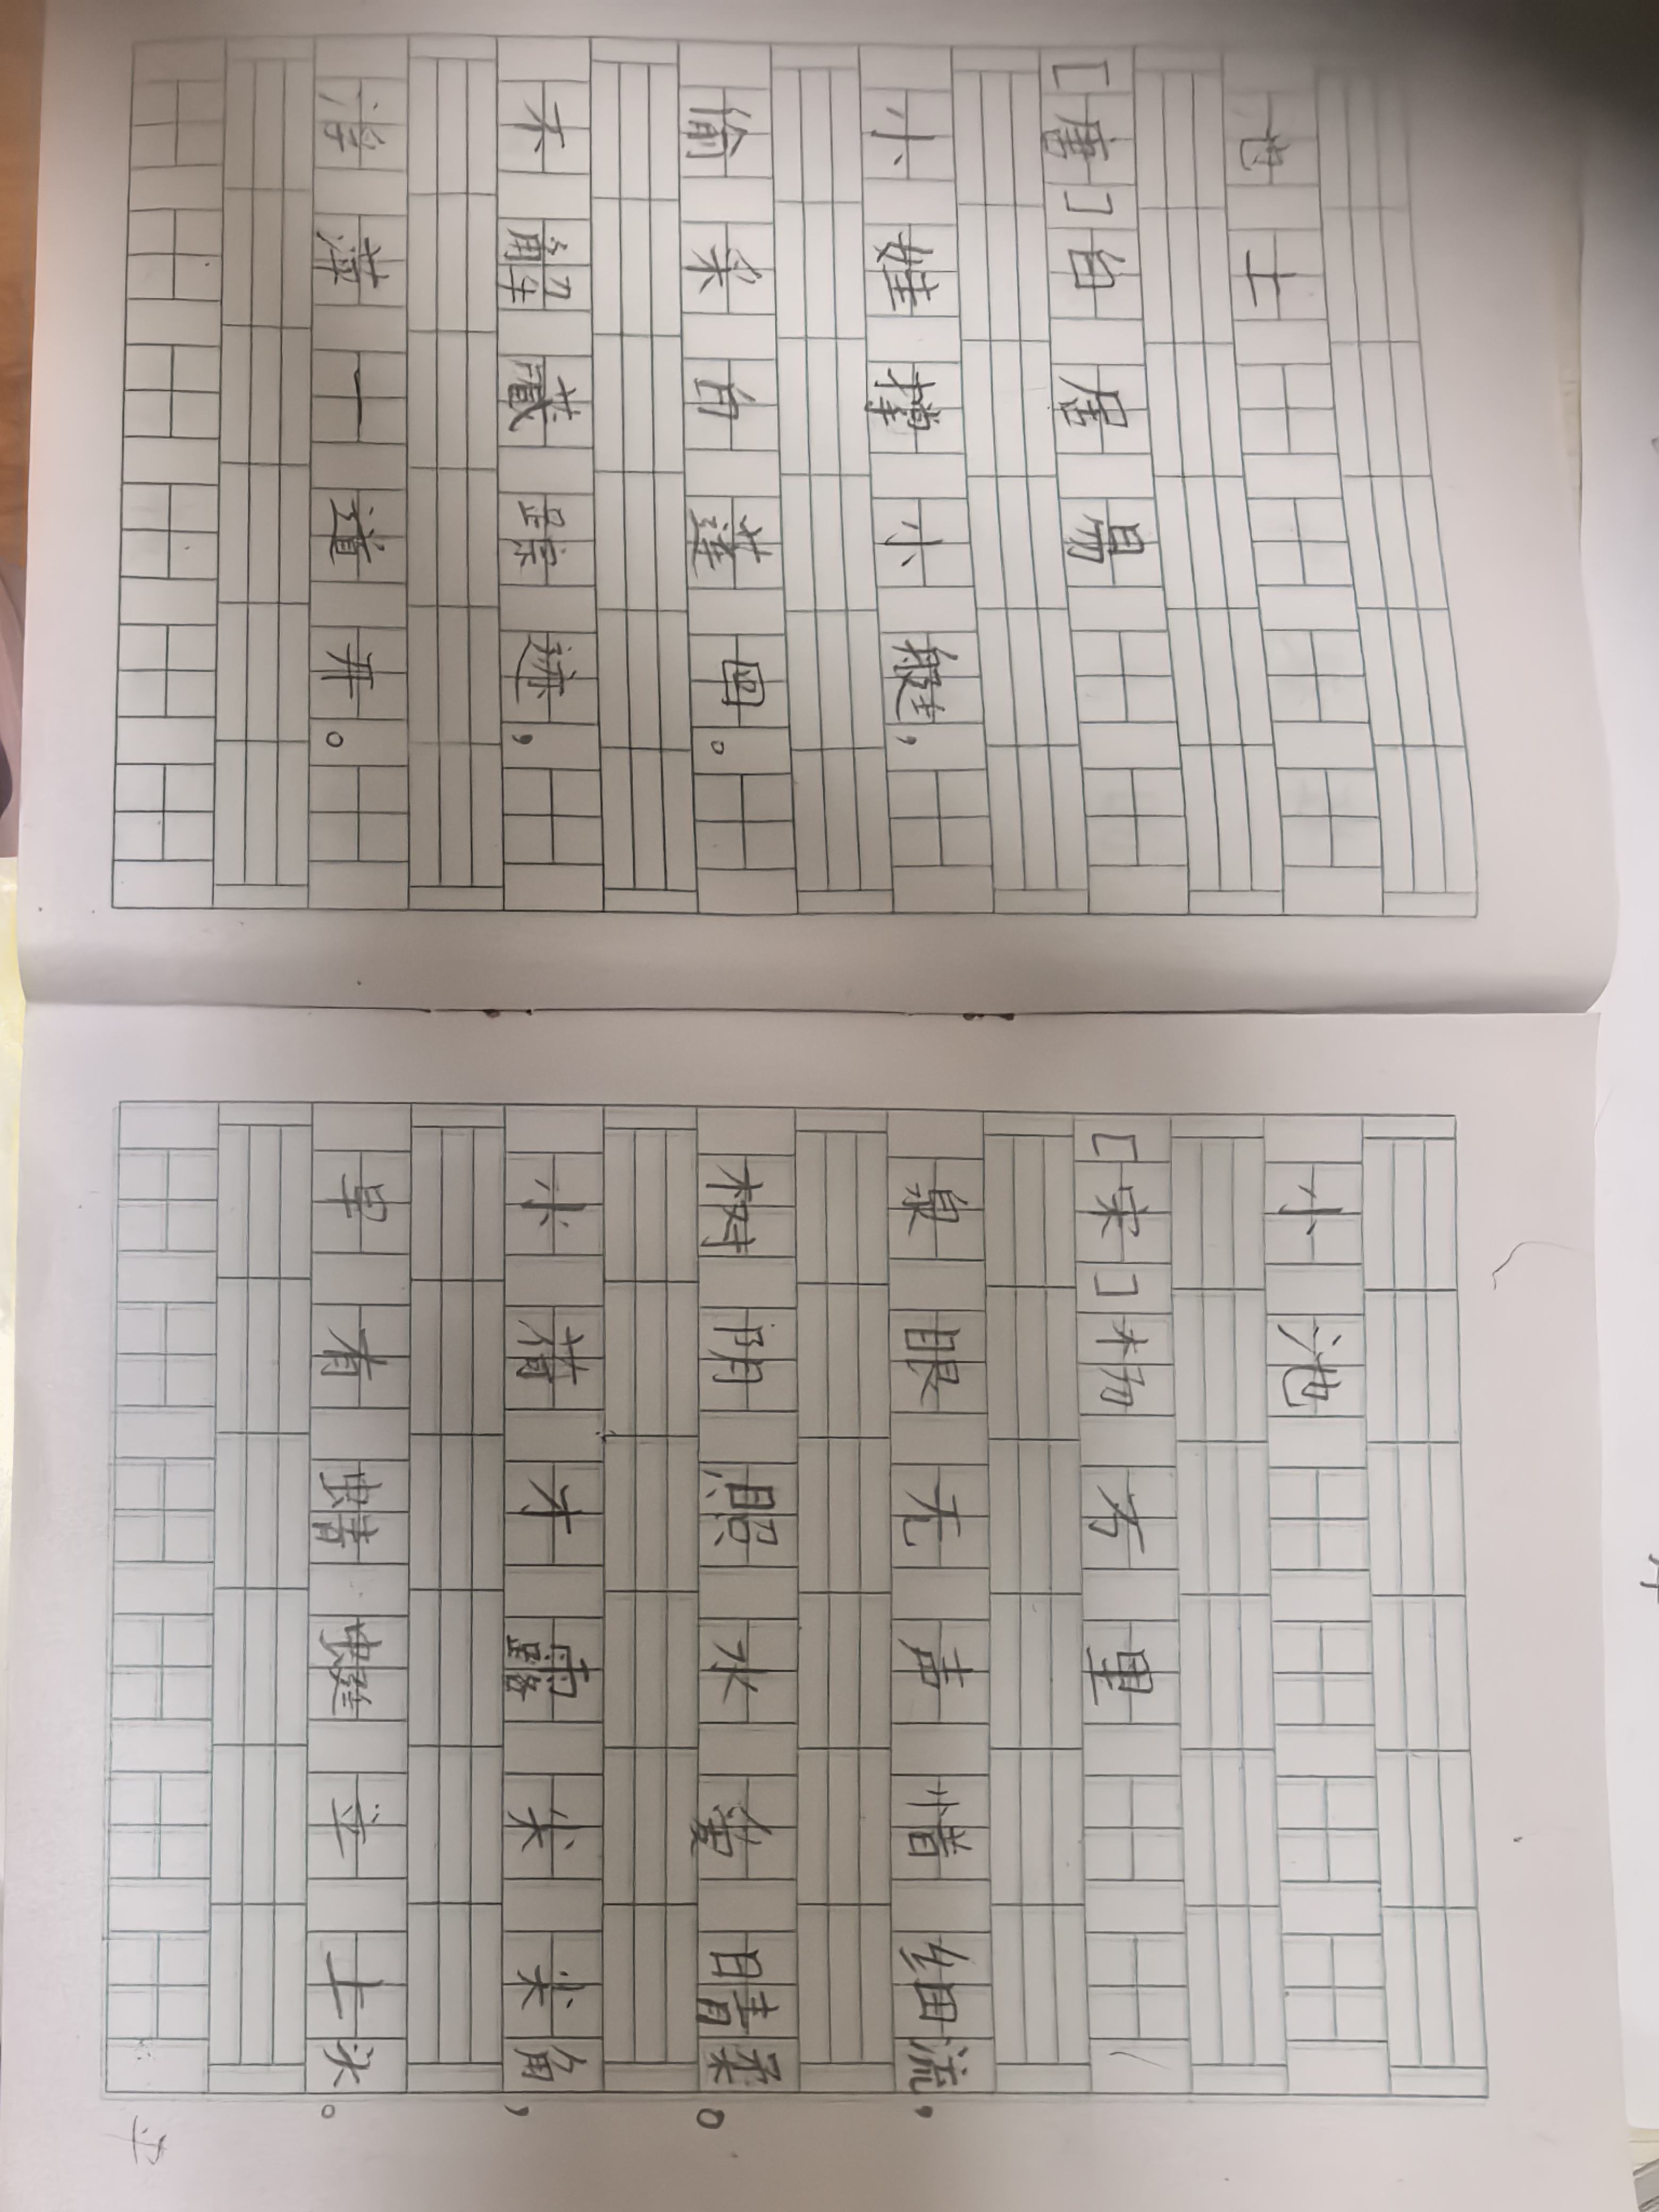 池上
[唐]白居易
小娃撑小艇,
偷采白莲回。
不解藏踪迹,
浮萍一道开。
小池
[宋]杨万里
泉眼无声惜细流,
树阴照水爱晴柔。
小荷才露尖尖角,
早有蜻蜓立上头。